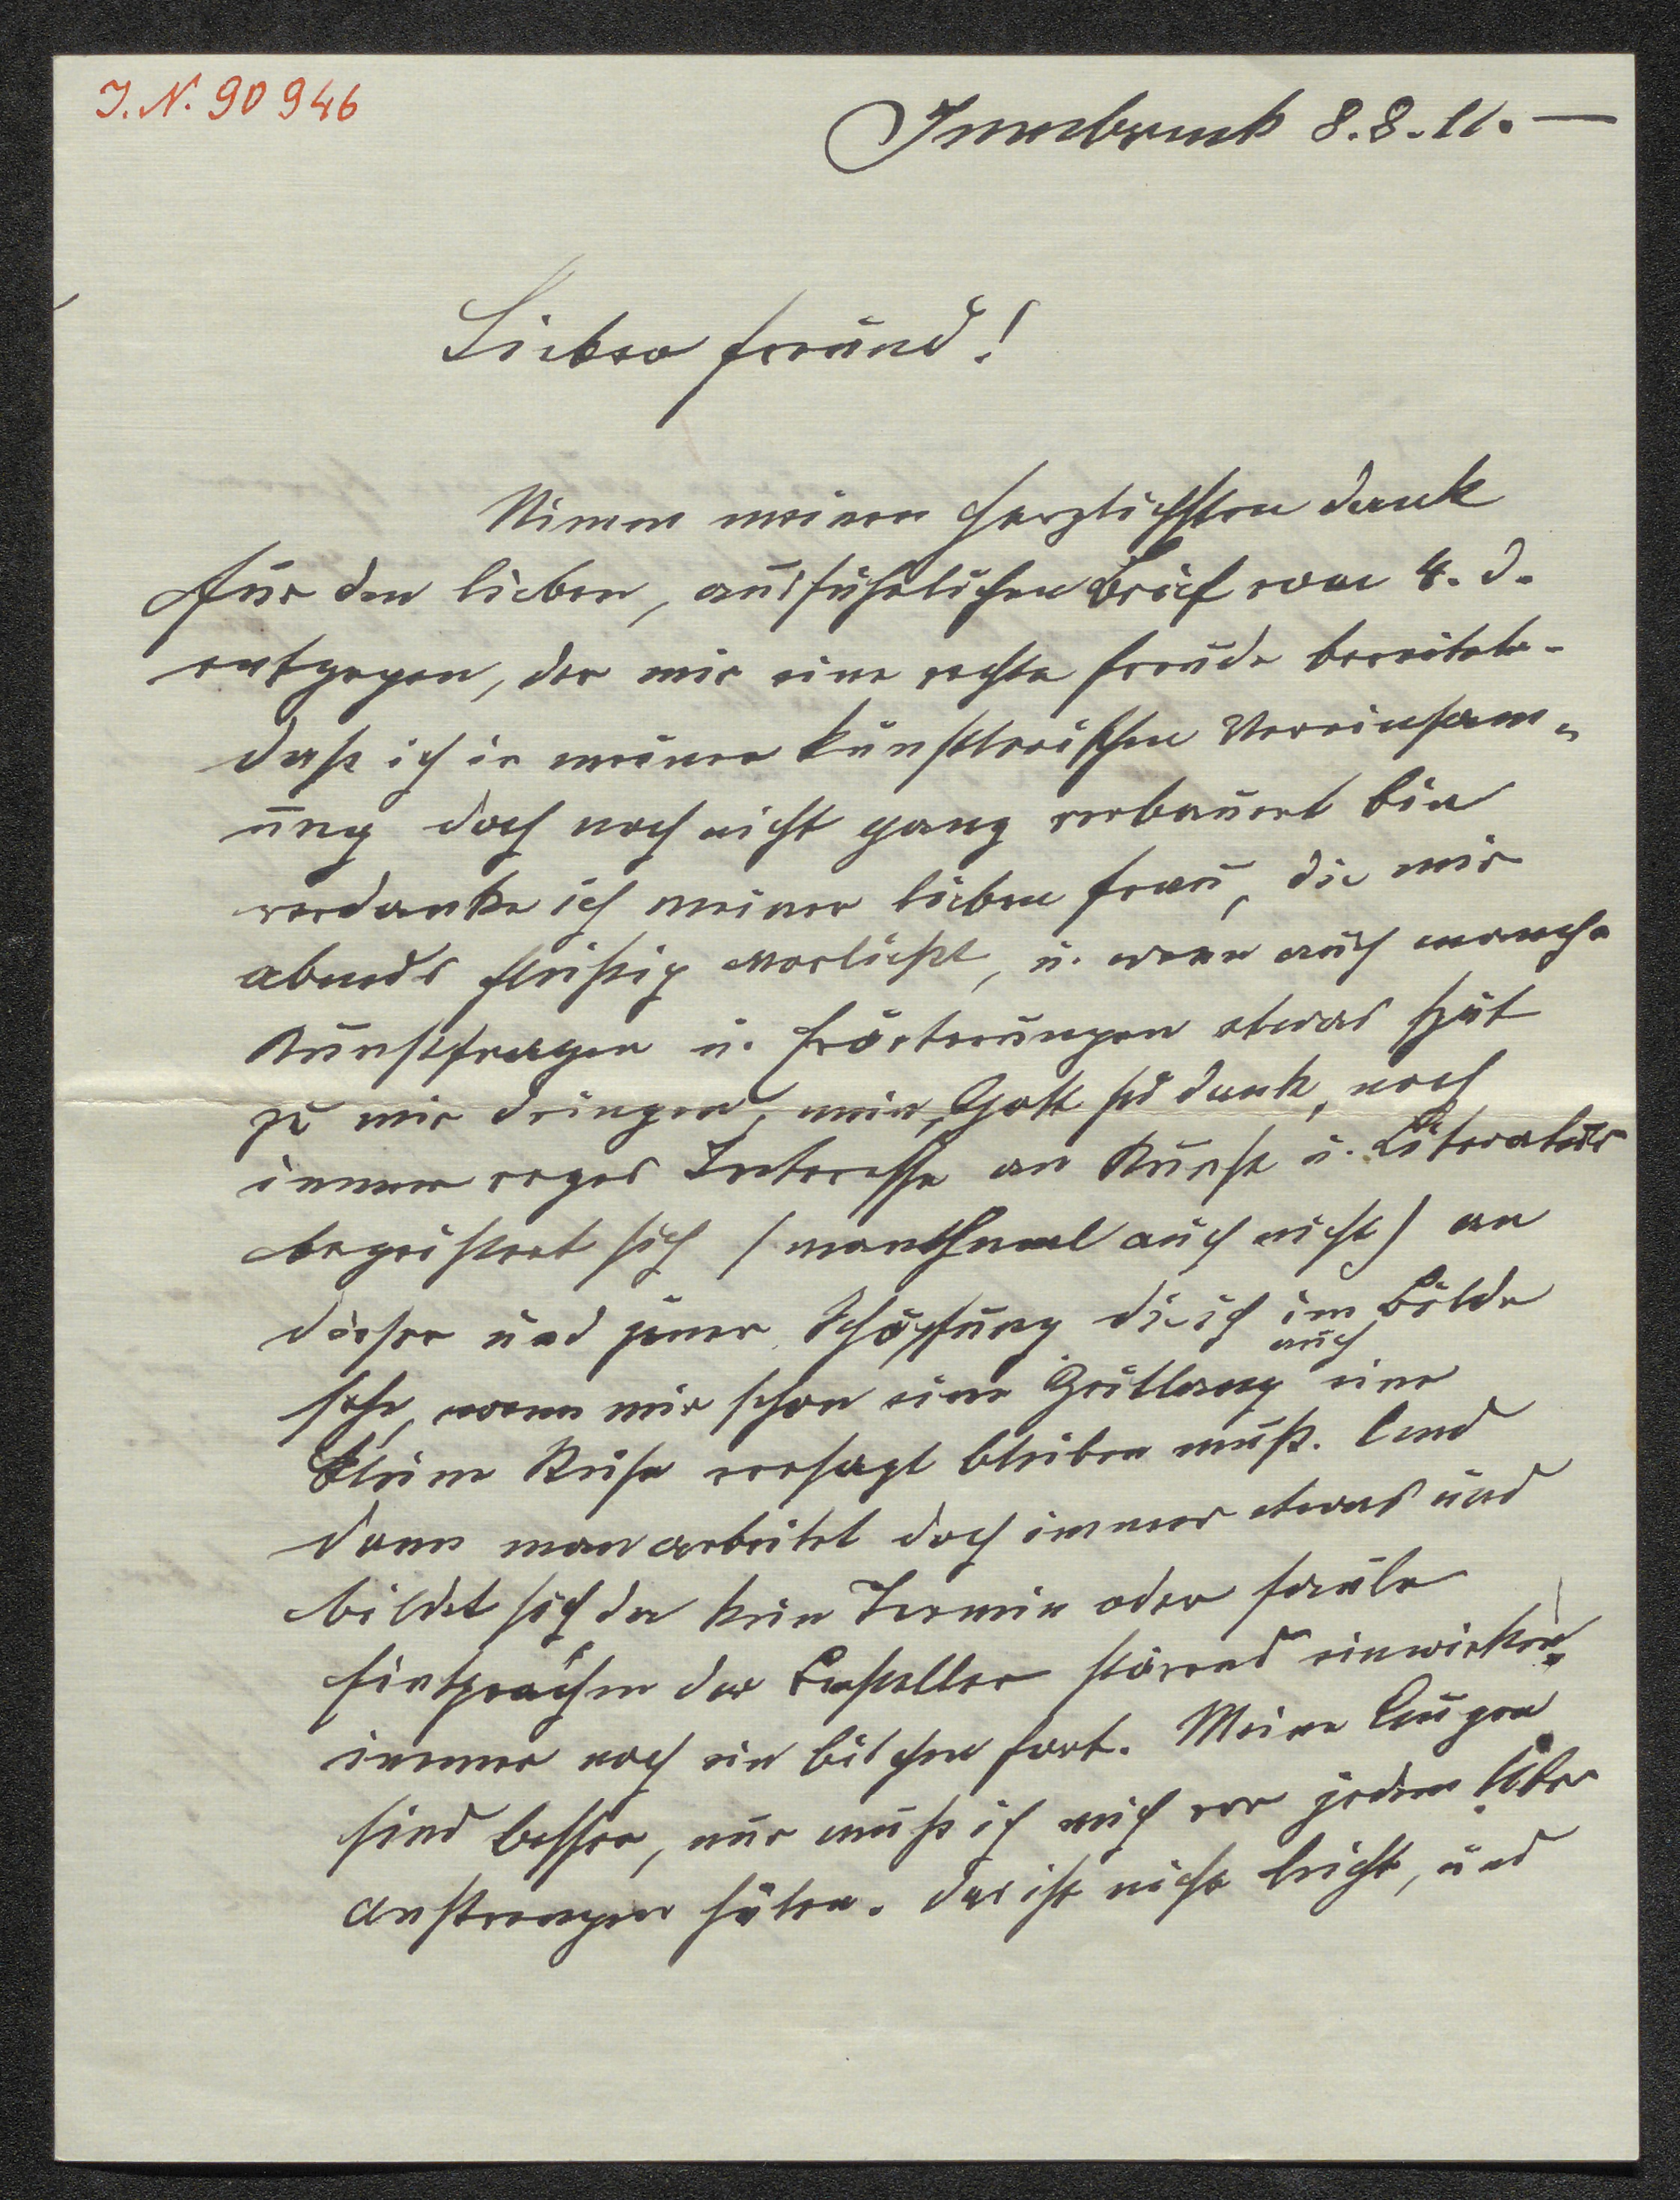 J. N. 90 946
Innsbruck 8.8.11. —
Lieber Freund!
Nimm meinen herzlichsten Dank
für den lieben, ausführlichen Brief vom 4. d.
entgegen, der mir eine rechte Freude bereitete.
Daß ich in meiner künstlerischen Vereinsam-
ung doch noch nicht ganz verbauert bin
verdanke ich meiner lieben Frau, die mir
abends fleißig vorließt, u. wenn auch manche
Kunstfragen u. Erörterungen etwas spät
zu mir dringen, mein, Gott sei Dank, noch
immer reges Interesse an Kunst u. Literatur
begeistert sich (manchmal auch nicht) an
dieser und jener Schöpfung die ich im Bilde
sehe, wenn mir schon eine Zeitlang auch eine
kleine Reise versagt bleiben muß. Und
dann man arbeitet doch immer etwas und
bildet sich da kein Termin oder faule
Einsprachen der Besteller störend einwirken
immer noch ein bischen fort. Meine Augen
sind besser, nur muß ich mich vor jedem Über
anstrengen hüten. Das ist nicht leicht, und